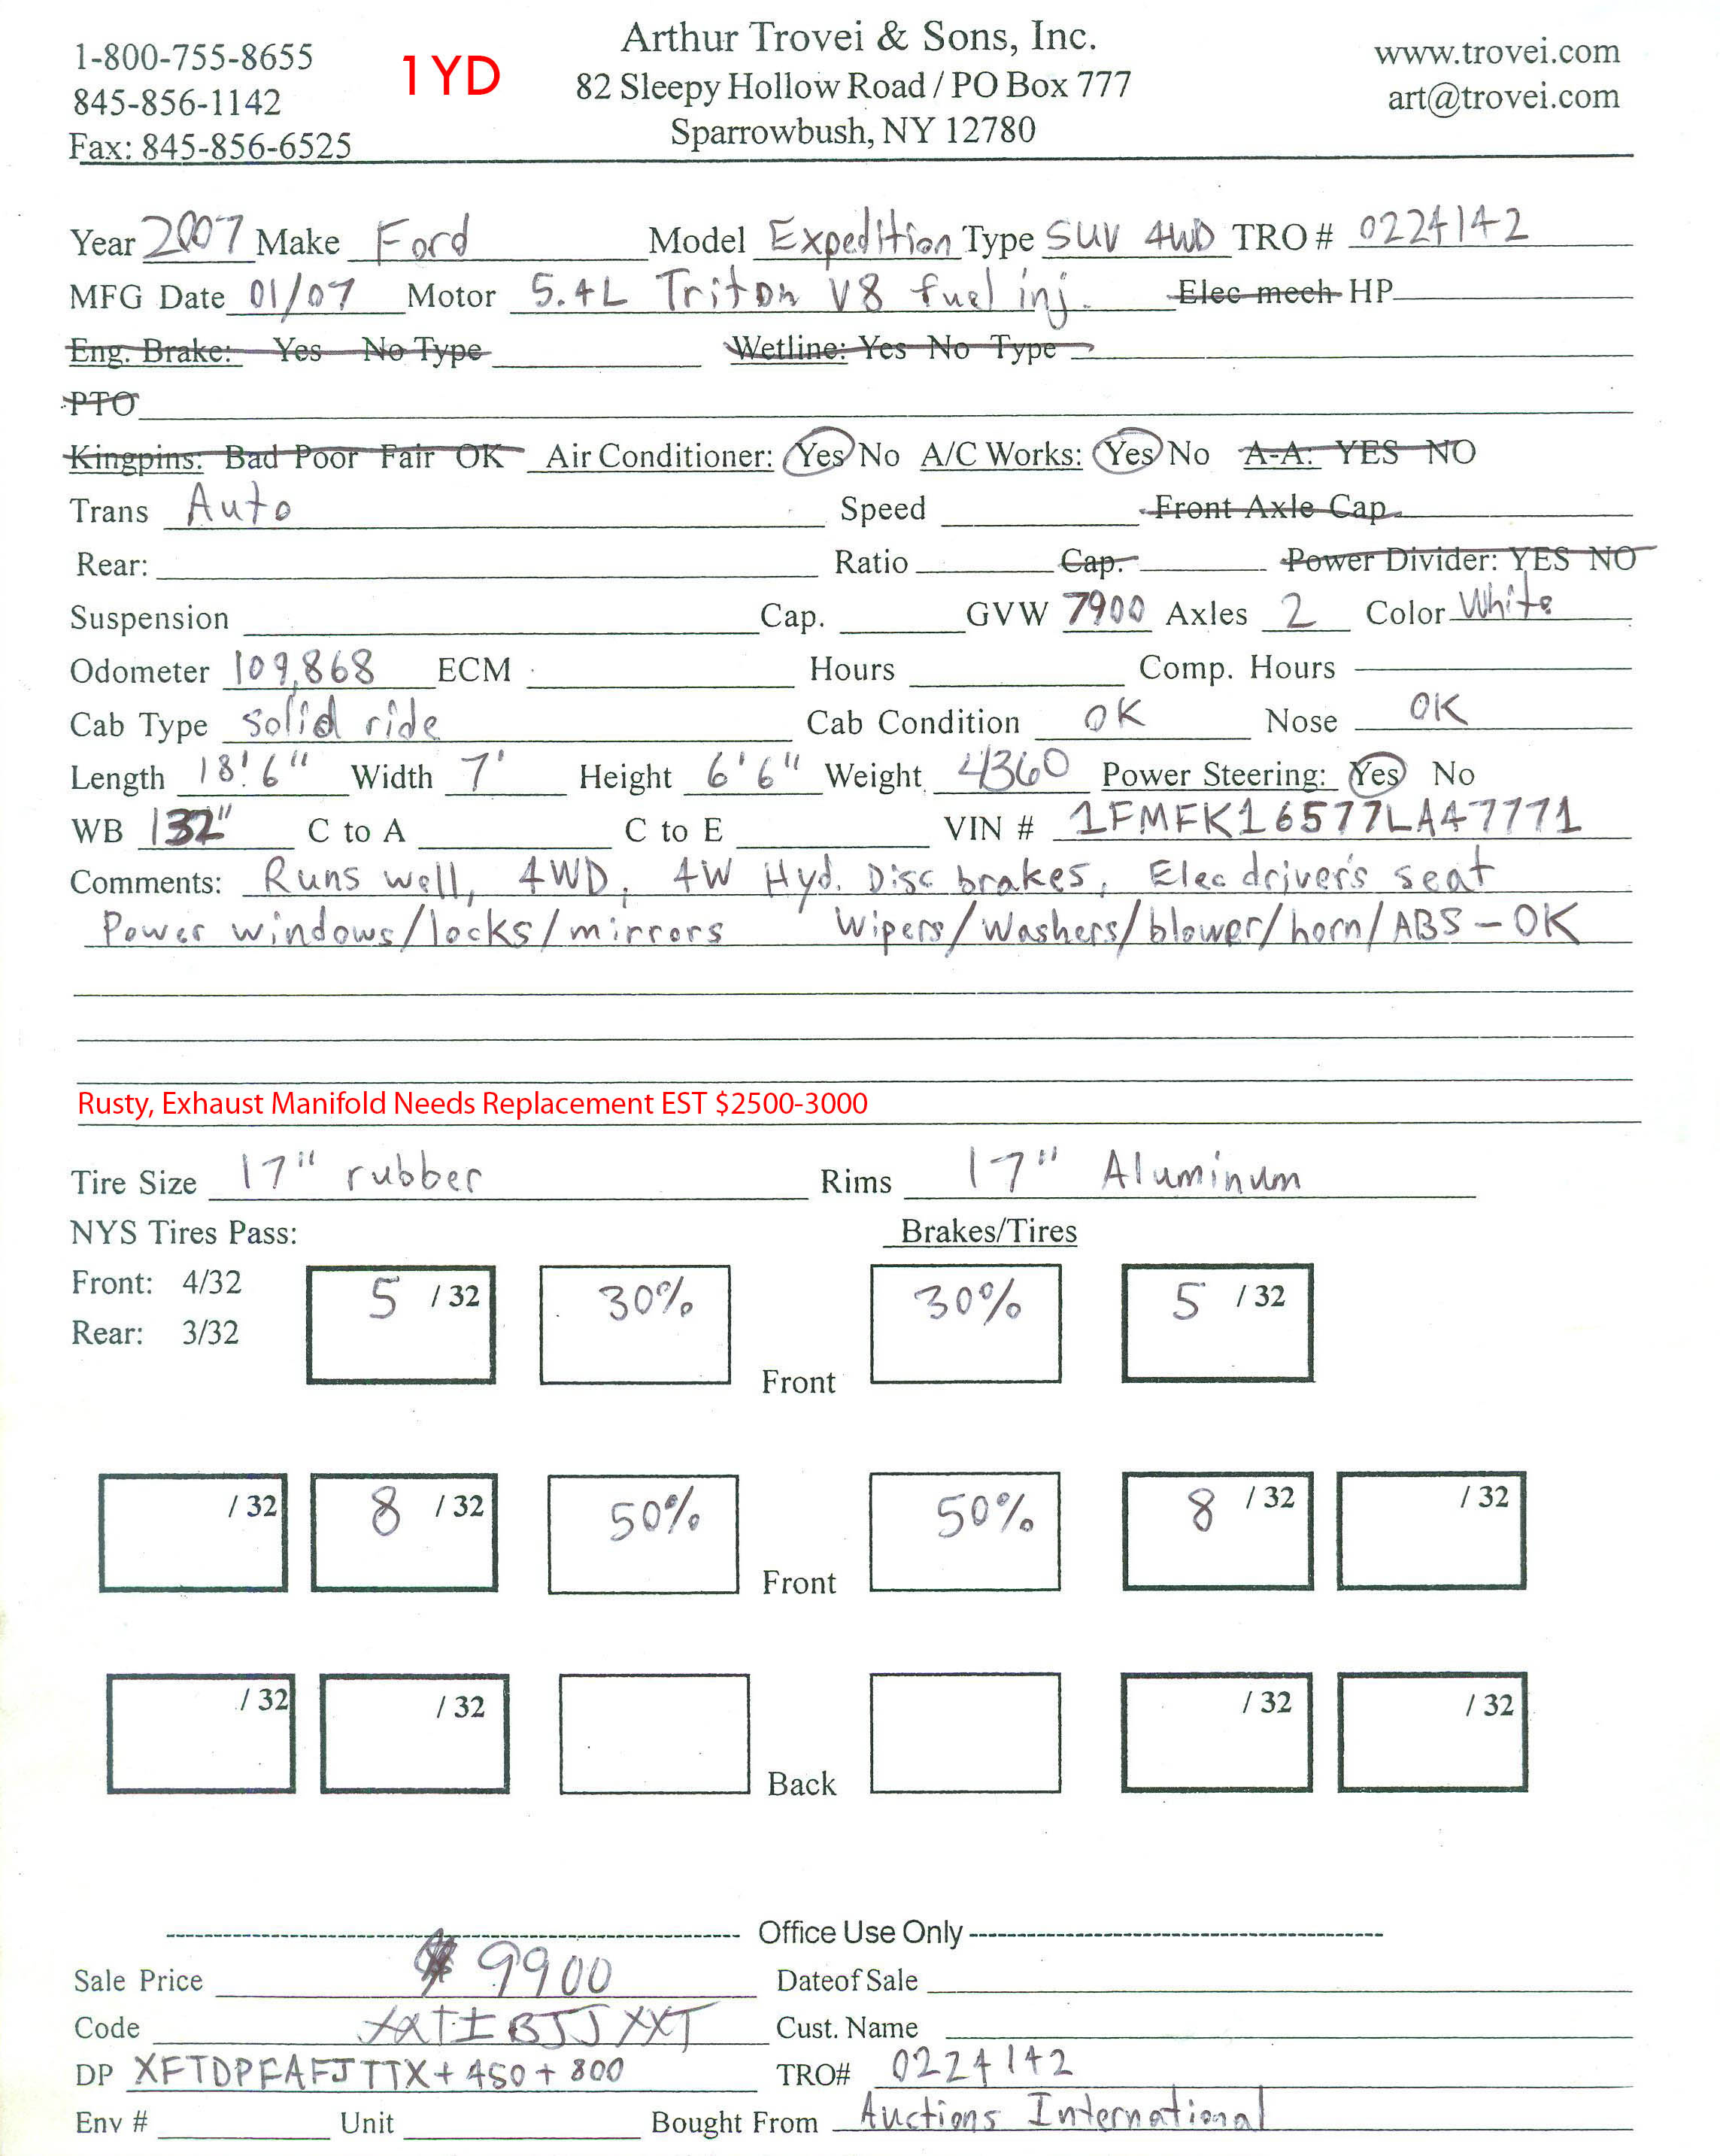 Arthur Trovei & Sons, Inc.
1-800-755-8655 1YD 82 Sleepy Hollow Road / PO Box 777 www.trovei.com
845-856-1142 Sparrowbush, NY 12780 art@trovei.com
Fax: 845-856-6525
Year 2007 Make Ford Model Expedition Type SUV 4WD TRO # 0224142
MFG Date 01/07 Motor 5.4L Triton V8 fuel inj. Elec mech HP
Eng. Brake: Yes No Type Wetline: Yes No Type
PTO
Kingpins: Bad Poor Fair OK Air Conditioner: Yes No A/C Works: Yes No A-A: YES NO
Trans Auto Speed Front Axle Cap.
Rear: Ratio Cap. Power Divider: YES NO
Suspension Cap. GVW 7900 Axles 2 Color White
Odometer 109,868 ECM Hours Comp. Hours
Cab Type solid ride Cab Condition OK Nose OK
Length 18'6" Width 7' Height 6'6" Weight 4360 Power Steering: Yes No
WB 132" C to A C to E VIN # 1FMFK16577LA47771
Comments: Runs well, 4WD, 4W Hyd. Disc brakes, Elec driver's seat
Power windows/locks/mirrors Wipers/washers/blower/horn/ABS - OK
Rusty, Exhaust Manifold Needs Replacement EST $2500-3000
Tire Size 17" rubber Rims 17" Aluminum
NYS Tires Pass: Brakes/Tires
Front: 4/32 5 /32 30% 30% 5 /32
Rear: 3/32
Front
/32 8 /32 50% 50% 8 /32 /32
Front
/32 /32 /32 /32
Back
Office Use Only
Sale Price $9900 Date of Sale
Code Cust. Name
DP XFTDPFAFJTTX + 450 + 800 TRO# 0224142
Env # Unit Bought From Auctions International